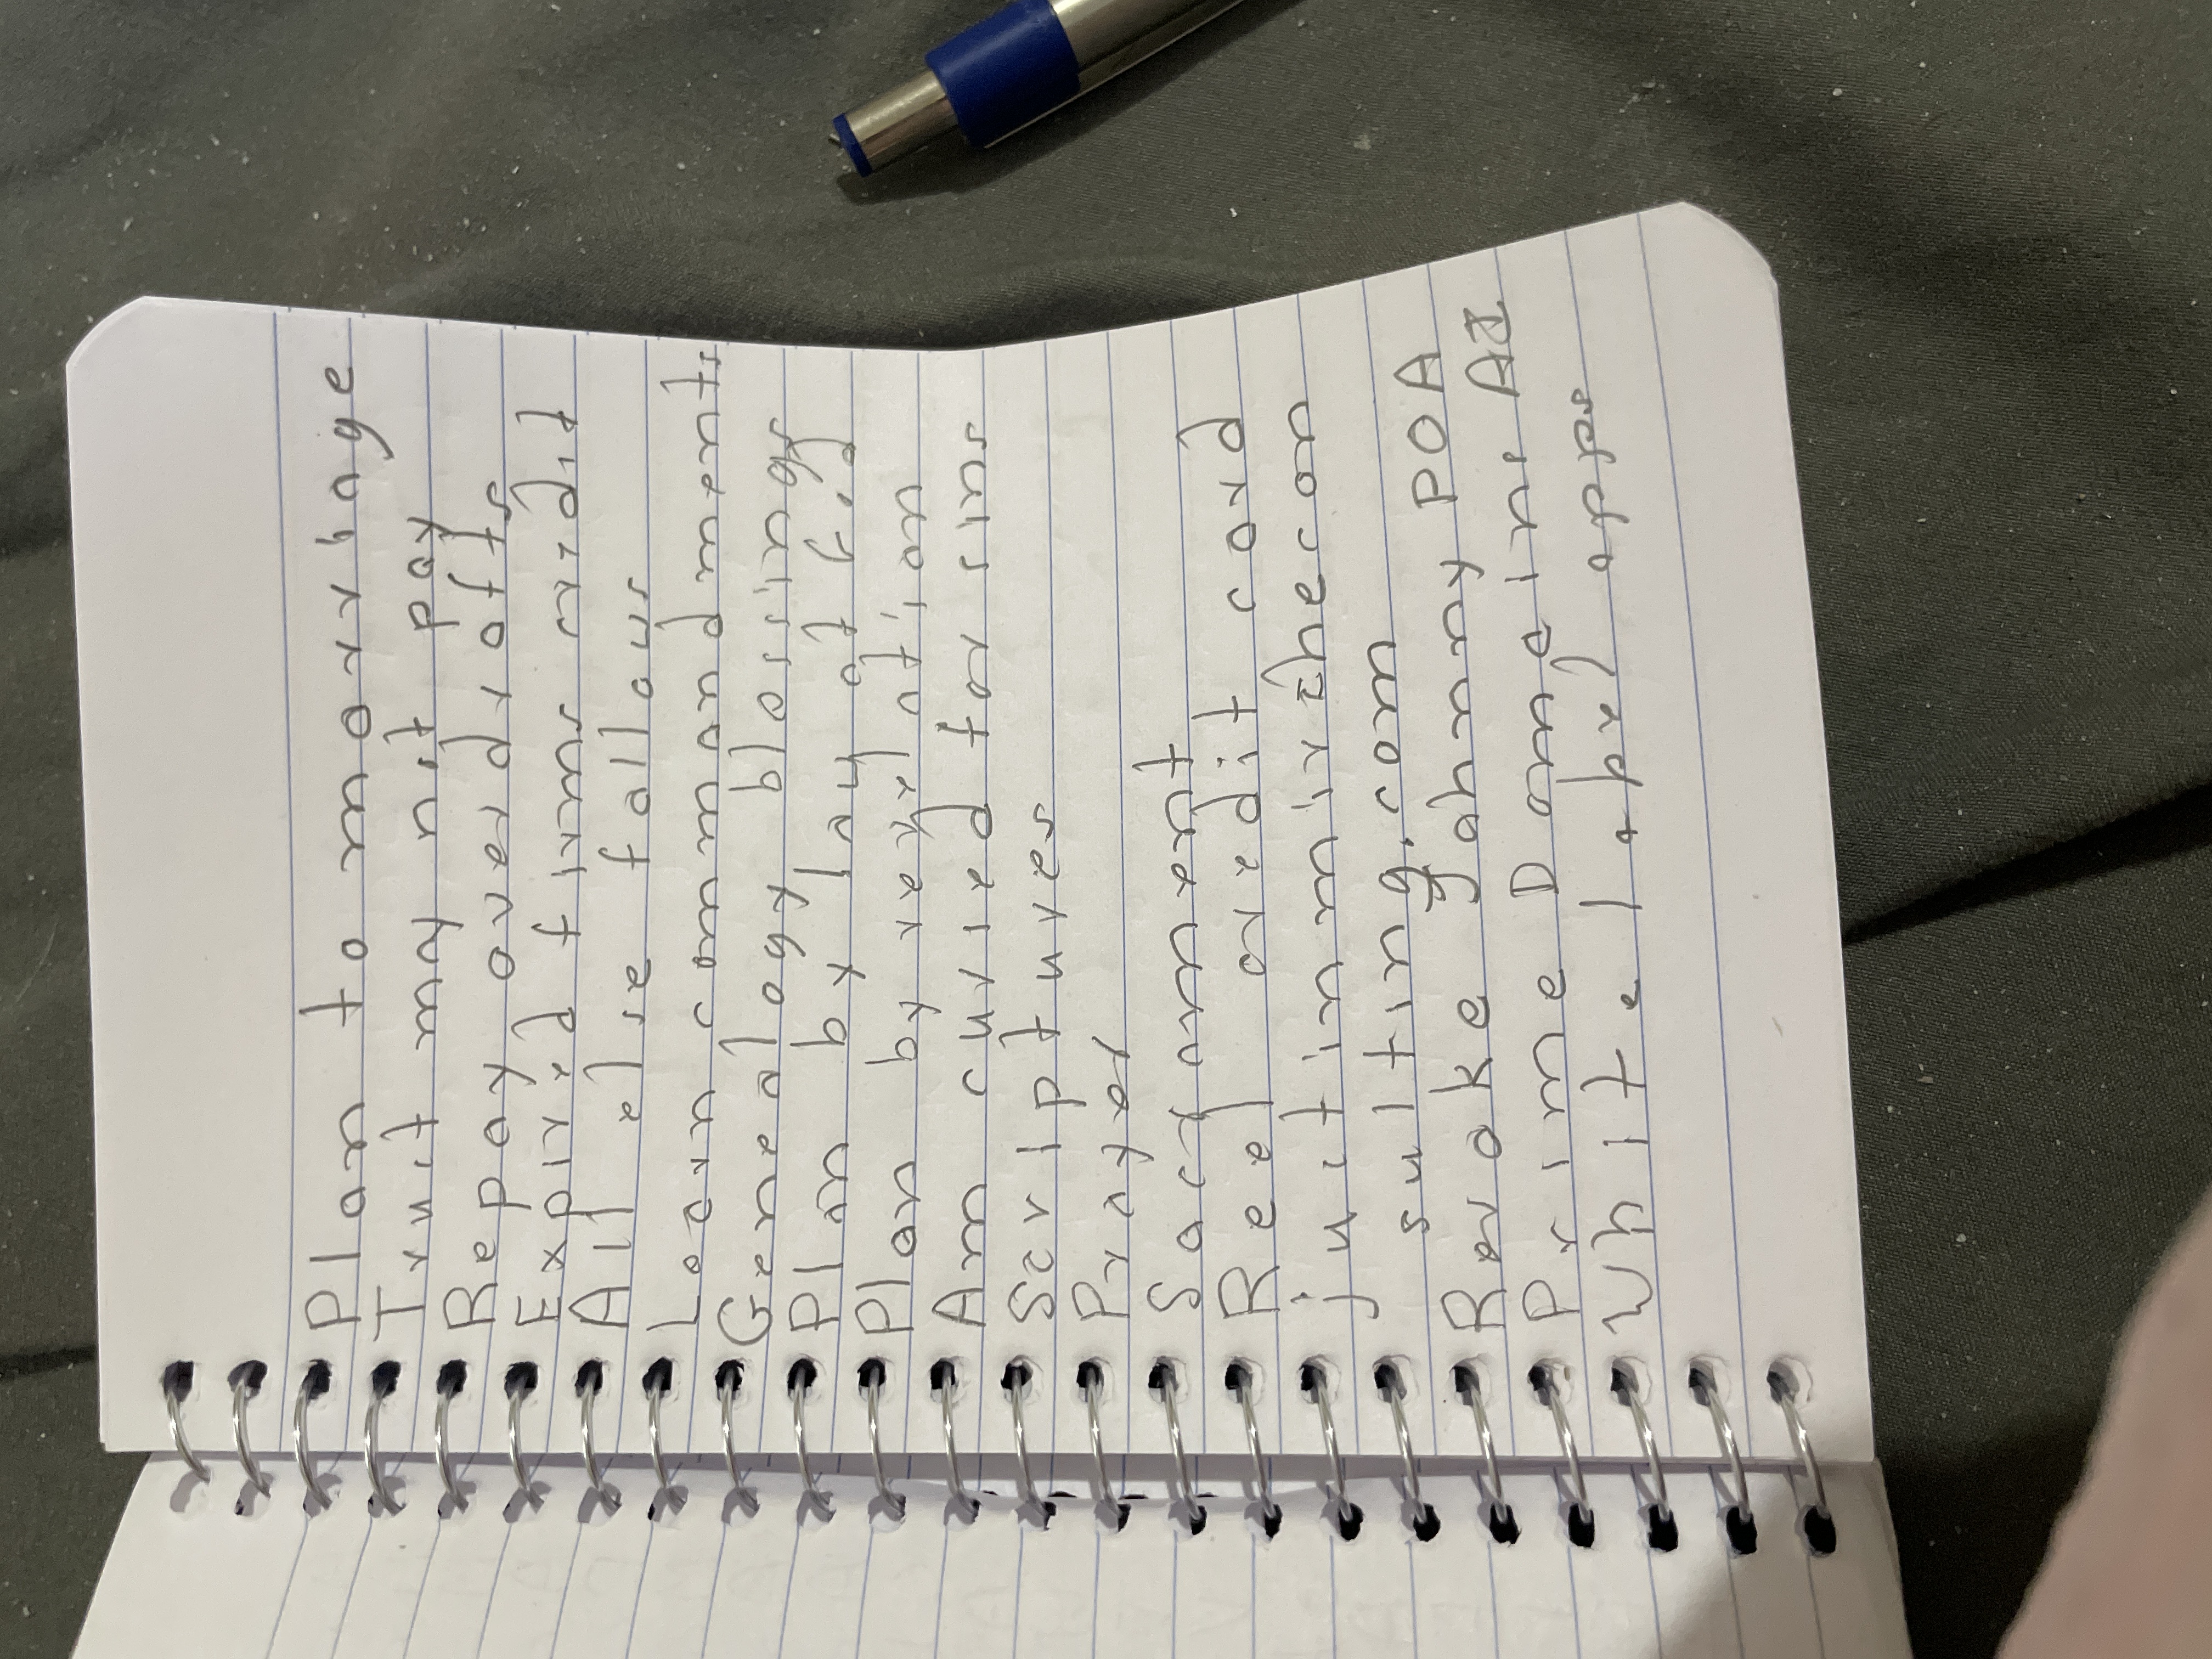 Plan to marriage
Truit may n't pay
Repay overdrafts
Expired firms credit
All else fallons
Learn commandments
Genealogy blossings
Plan by law of God
Plan by verification
Am cursed for sins
Scriptures
Prayer
Sacrament
Reel credit card
justinmirzhecon
sulting.com
Revoke Johnny POA
Prime Domains AI
White label apps